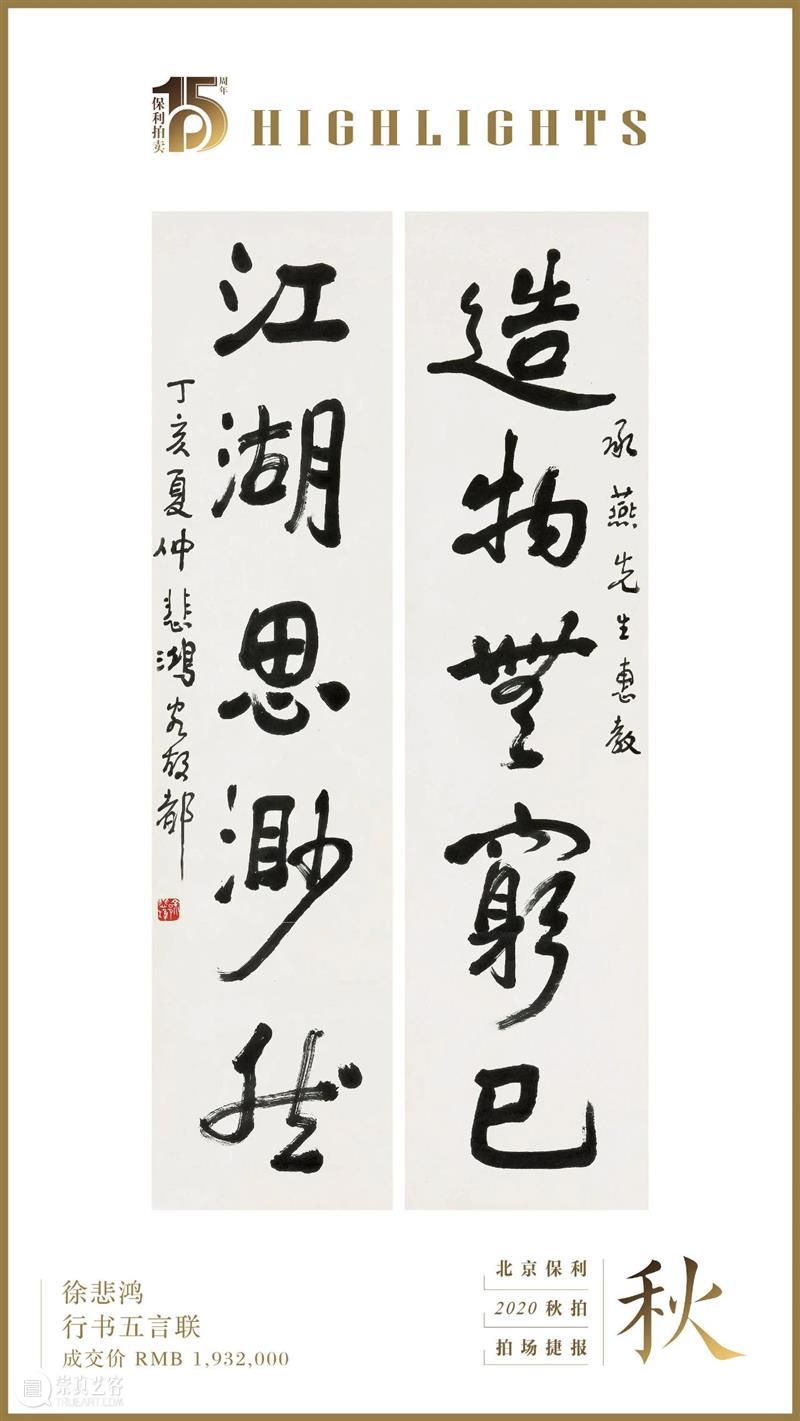 15周年
保利拍卖
HIGHLIGHTS
承燕先生惠教
造物無窮已
江湖思渺然
丁亥夏仲悲鴻客故都
徐悲鸿
行书五言联
成交价 RMB 1,932,000
北京保利
2020 秋拍
拍场捷报
秋
崇真艺客
TRUEART.COM